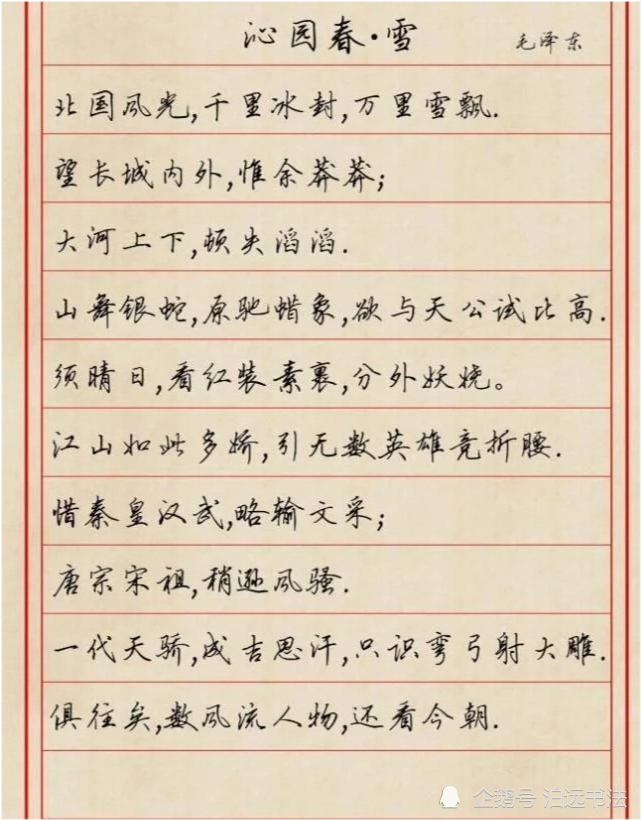 沁园春·雪 毛泽东
北国风光,千里冰封,万里雪飘.
望长城内外,惟余莽莽;
大河上下,顿失滔滔.
山舞银蛇,原驰蜡象,欲与天公试比高.
须晴日,看红装素裹,分外妖娆。
江山如此多娇,引无数英雄竞折腰.
惜秦皇汉武,略输文采;
唐宗宋祖,稍逊风骚.
一代天骄,成吉思汗,只识弯弓射大雕.
俱往矣,数风流人物,还看今朝.
企鹅号 泊远书法